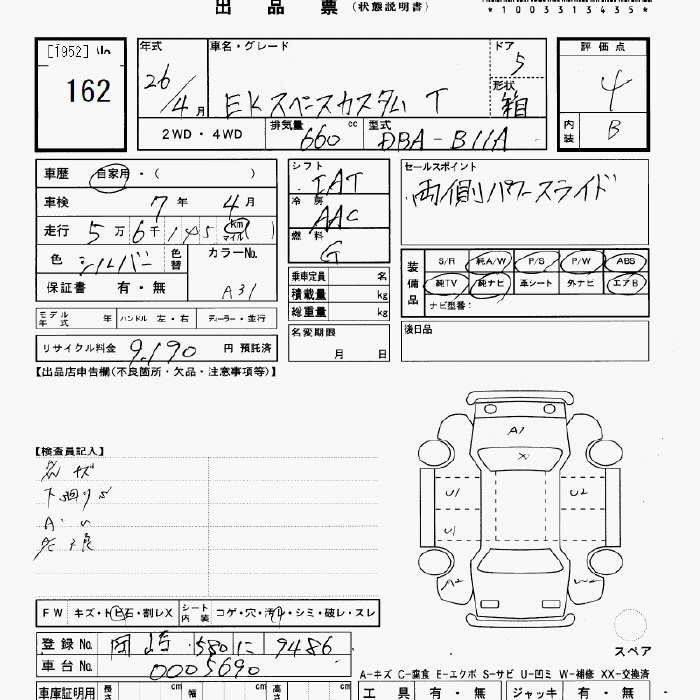 出 品 票 (状態説明書)
*1003313435*
[1952]
162
年式
26/4月
車名・グレード
EKスペースカスタム T
ドア
5
形状
箱
評価点
4
内装
B
2WD・4WD
排気量
660 cc
型式
DBA-B11A
車歴 自家用・( )
車検 7年 4月
走行 5万6千145 km マイル ( )
色 シルバー
色替
カラーNo.
A31
保証書 有・無
シフト
IAT
冷房
AAC
燃料
G
乗車定員 名
積載量 kg
総重量 kg
名変期限
月 日
セールスポイント
両側パワースライド
装備品
S/R 純A/W P/S P/W ABS
純TV 純ナビ 革シート 外ナビ エアB
ナビ型番:
後日品
モデル年式 年 ハンドル 左・右 ディーラー・並行
リサイクル料金 9,190 円 預託済
【出品店申告欄(不良箇所・欠品・注意事項等)】
【検査員記入】
A1
X
U1
U2
U1
A2
W2
スペア
FW キズ・トビ石・割レX
シート内装 コゲ・穴・汚レ・シミ・破レ・スレ
登録No. 岡崎 580 に 9486
車台No. 0005690
A-キズ C-腐食 E-エクボ S-サビ U-凹ミ W-補修 XX-交換済
車庫証明用 長さ cm 幅 cm 高さ cm
工具 有・無 ジャッキ 有・無